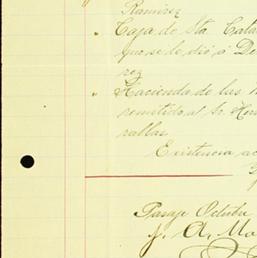 Ramirez
" Caja de Sta. Cata
que se le dió á De
rez
" Hacienda de las
remitido al Sr. Her
rallas
Existencia ac
Pasaje Octubre
J. A. Mo